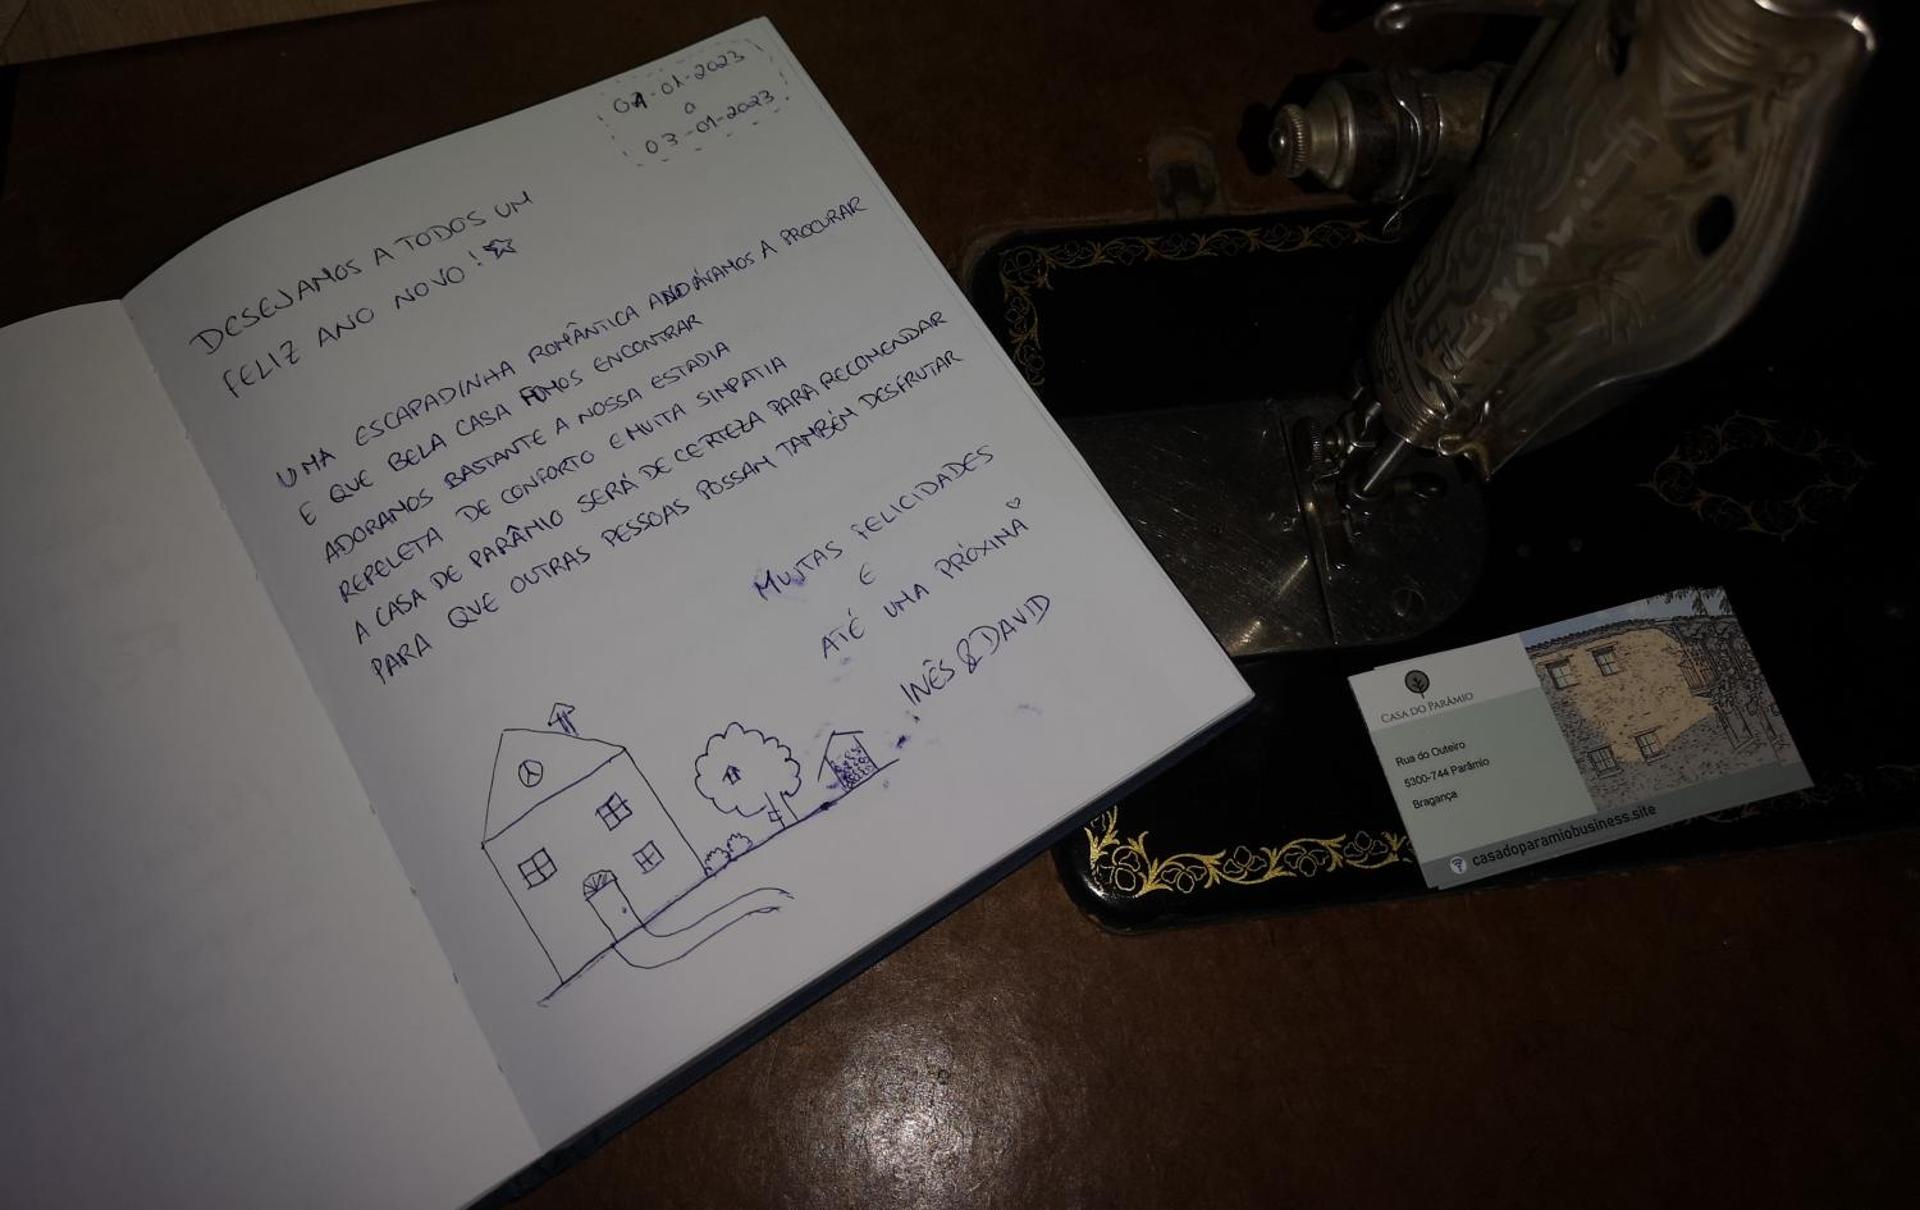 01-01-2023
a
03-01-2023
DESEJAMOS A TODOS UM
FELIZ ANO NOVO! ☆
UMA ESCAPADINHA ROMÂNTICA ANDÁVAMOS A PROCURAR
E QUE BELA CASA FOMOS ENCONTRAR
ADORAMOS BASTANTE A NOSSA ESTADIA
REPELETA DE CONFORTO E MUITA SIMPATIA
A CASA DE PARÂMIO SERÁ DE CERTEZA PARA RECOMENDAR
PARA QUE OUTRAS PESSOAS POSSAM TAMBÉM DESFRUTAR
MUITAS FELICIDADES
E
ATÉ UMA PRÓXIMA ♡
INÊS & DAVID
CASA DO PARÂMIO
Rua do Outeiro
5300-744 Parâmio
Bragança
casadoparamiobusiness.site